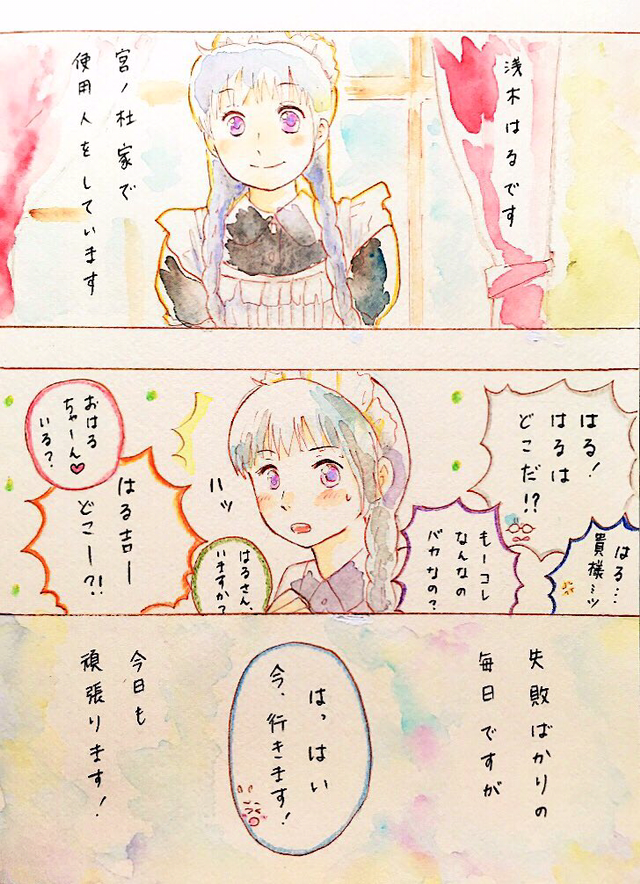 浅木はるです
宮ノ杜家で
使用人をしています
はる!
はるは
どこだ!?
はる…
貴様…ッ
もーコレ
なんなの
バカなの?
ハッ
はるさん、
いますか?
おはる
ちゃーん♡
いる?
はる吉ー
どこー?!
失敗ばかりの
毎日ですが
はっはい
今、行きます!
今日も
頑張ります!